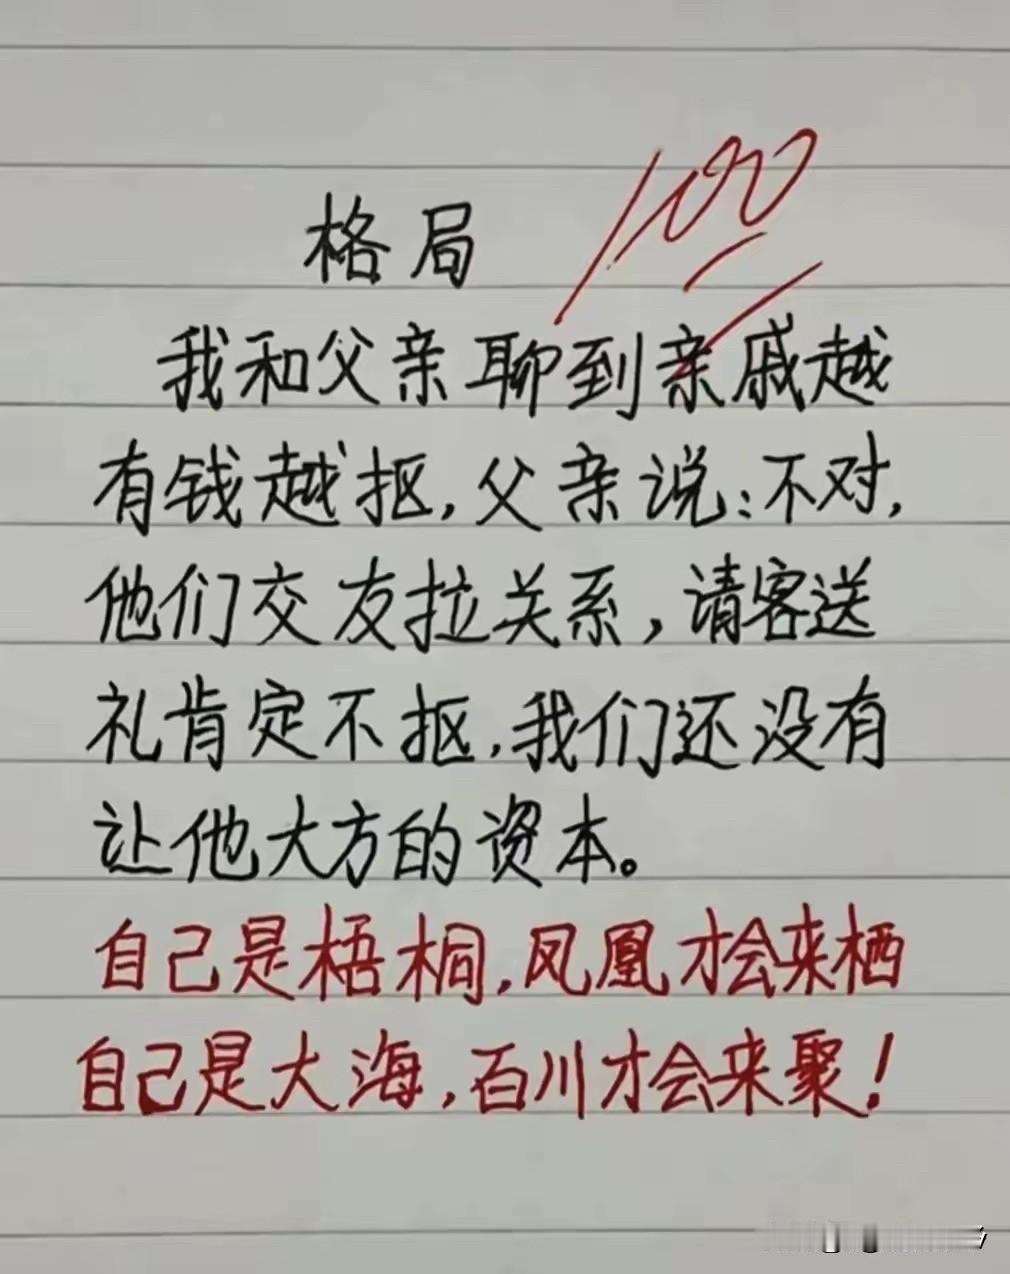 格局
100
我和父亲聊到亲戚越
有钱越抠,父亲说:不对,
他们交友拉关系,请客送
礼肯定不抠,我们还没有
让他大方的资本。
自己是梧桐,凤凰才会来栖
自己是大海,百川才会来聚!